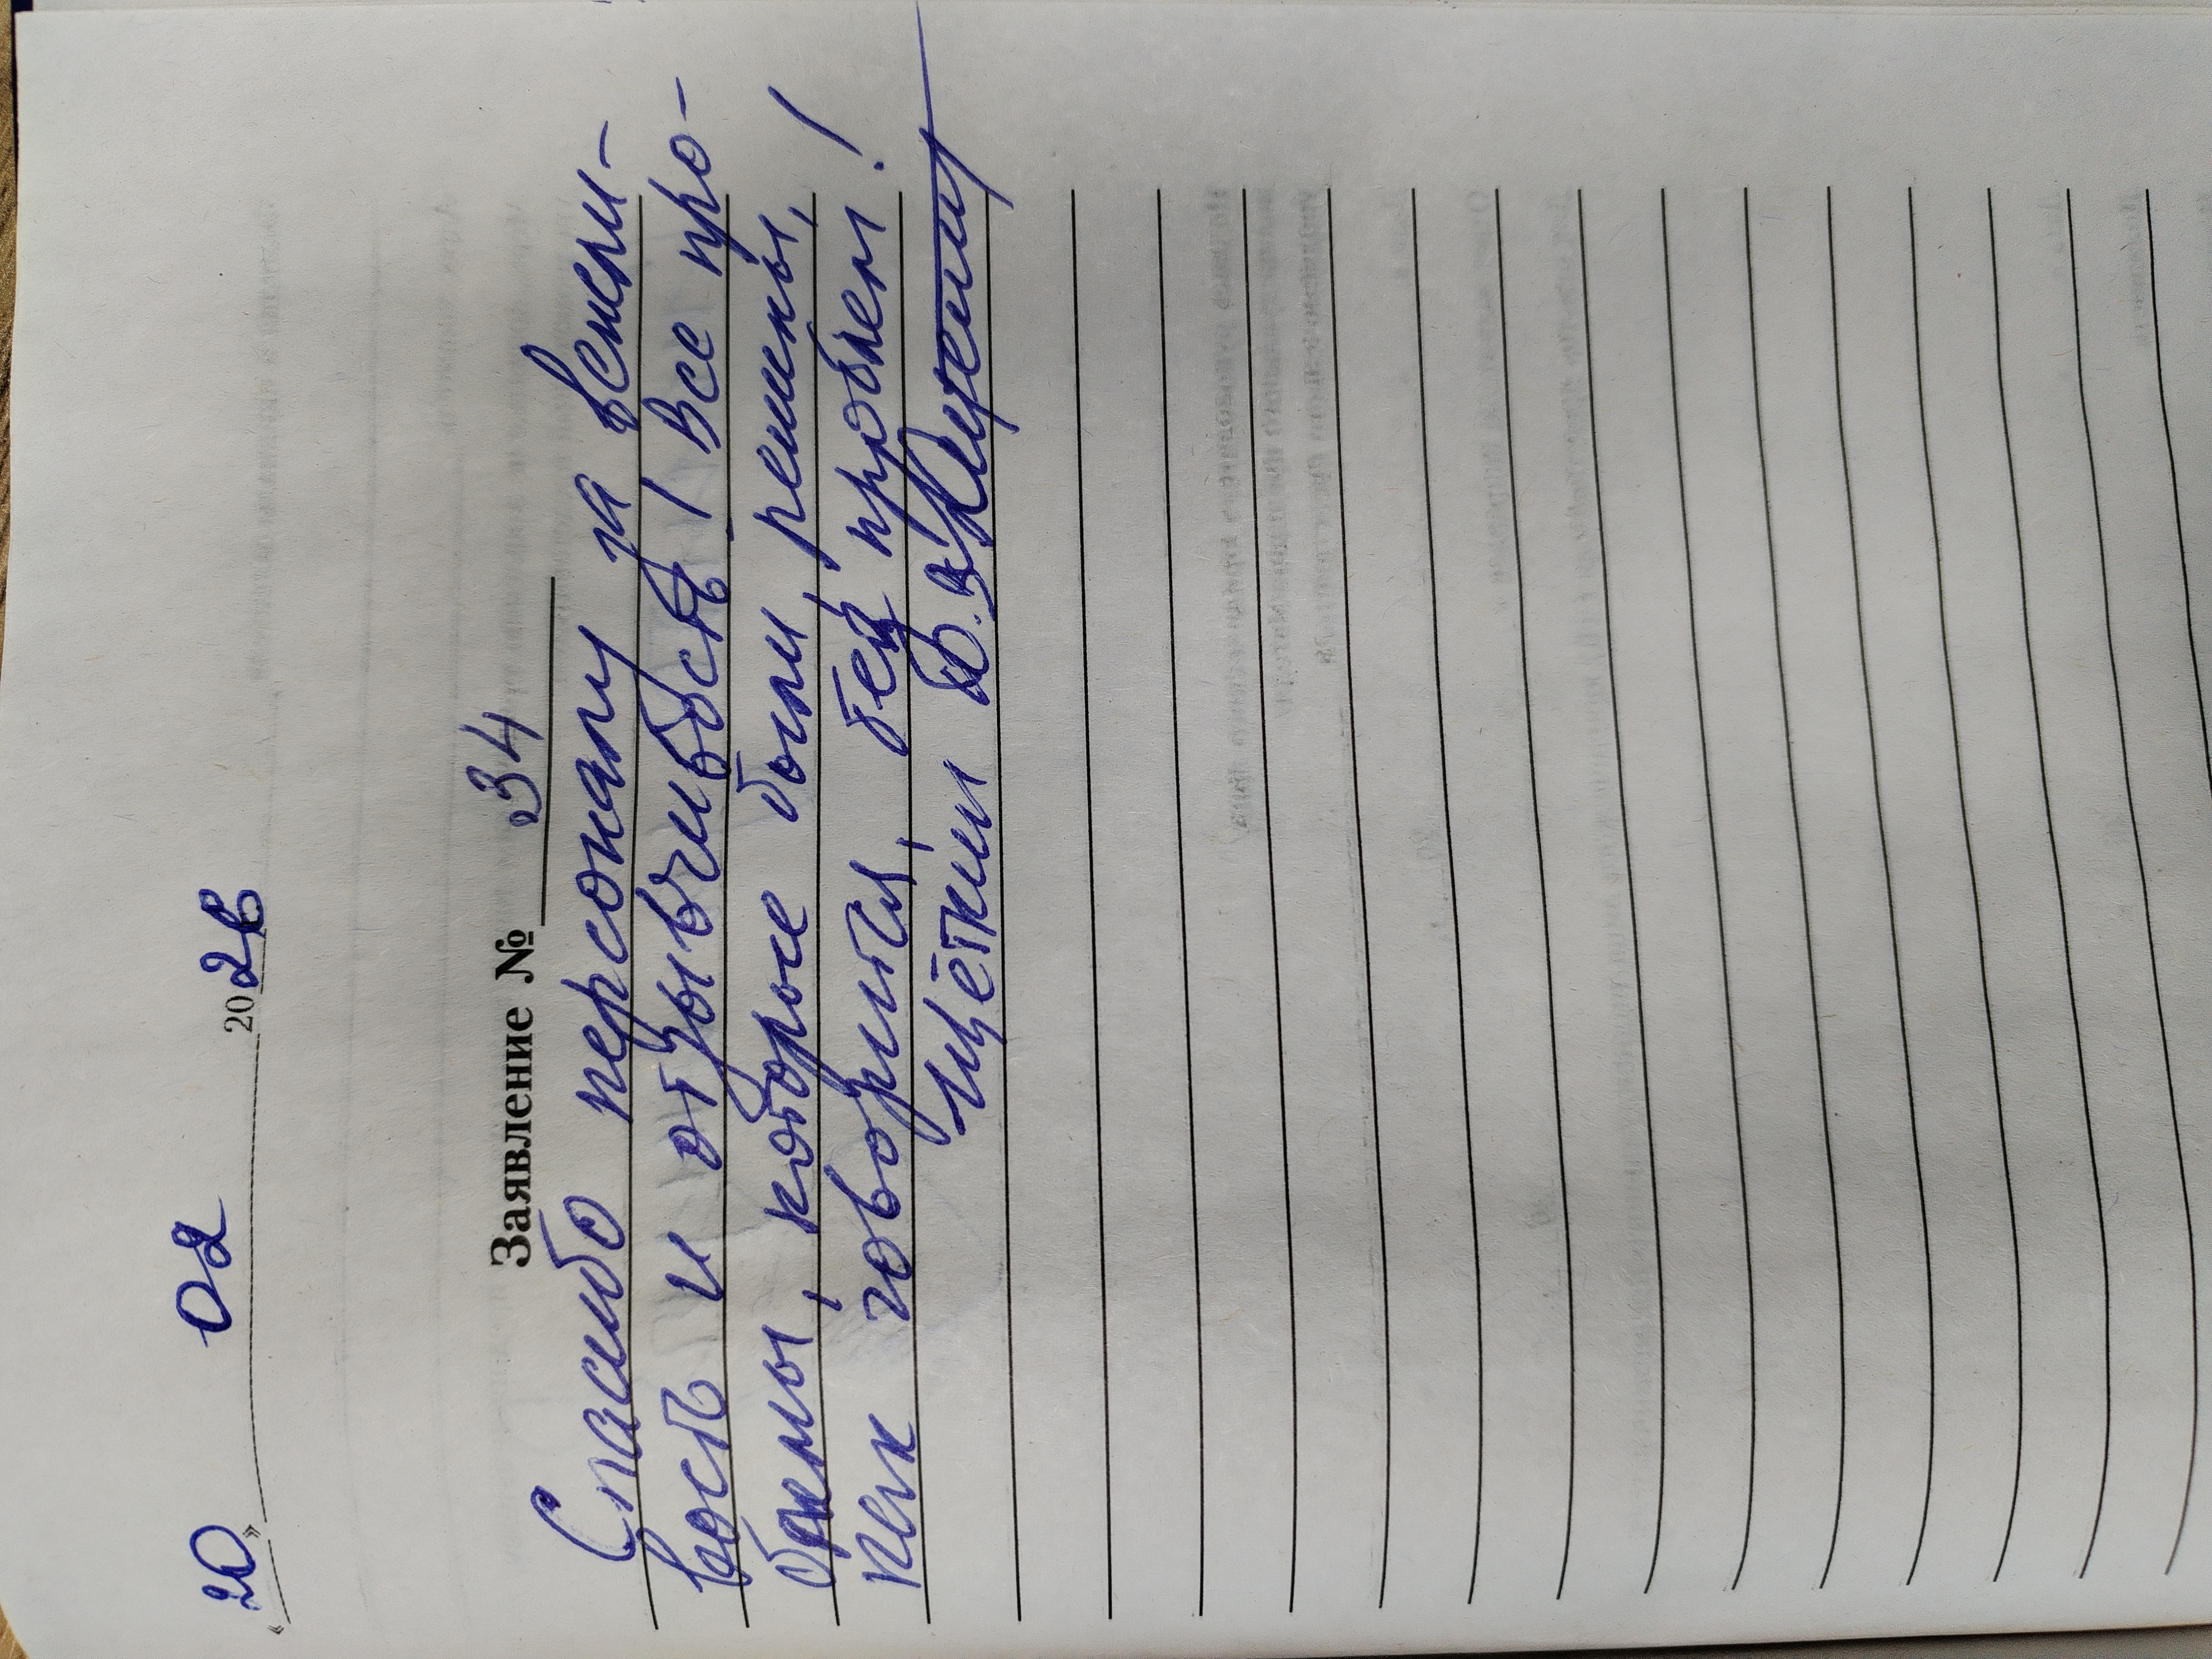 « 20 » 02 2026
Заявление № 34
Спасибо персоналу за вежли-
вость и отзывчивость! Все про-
блемы, которые были решены,
как говорится, без проблем!
Щёткин Ю.В.